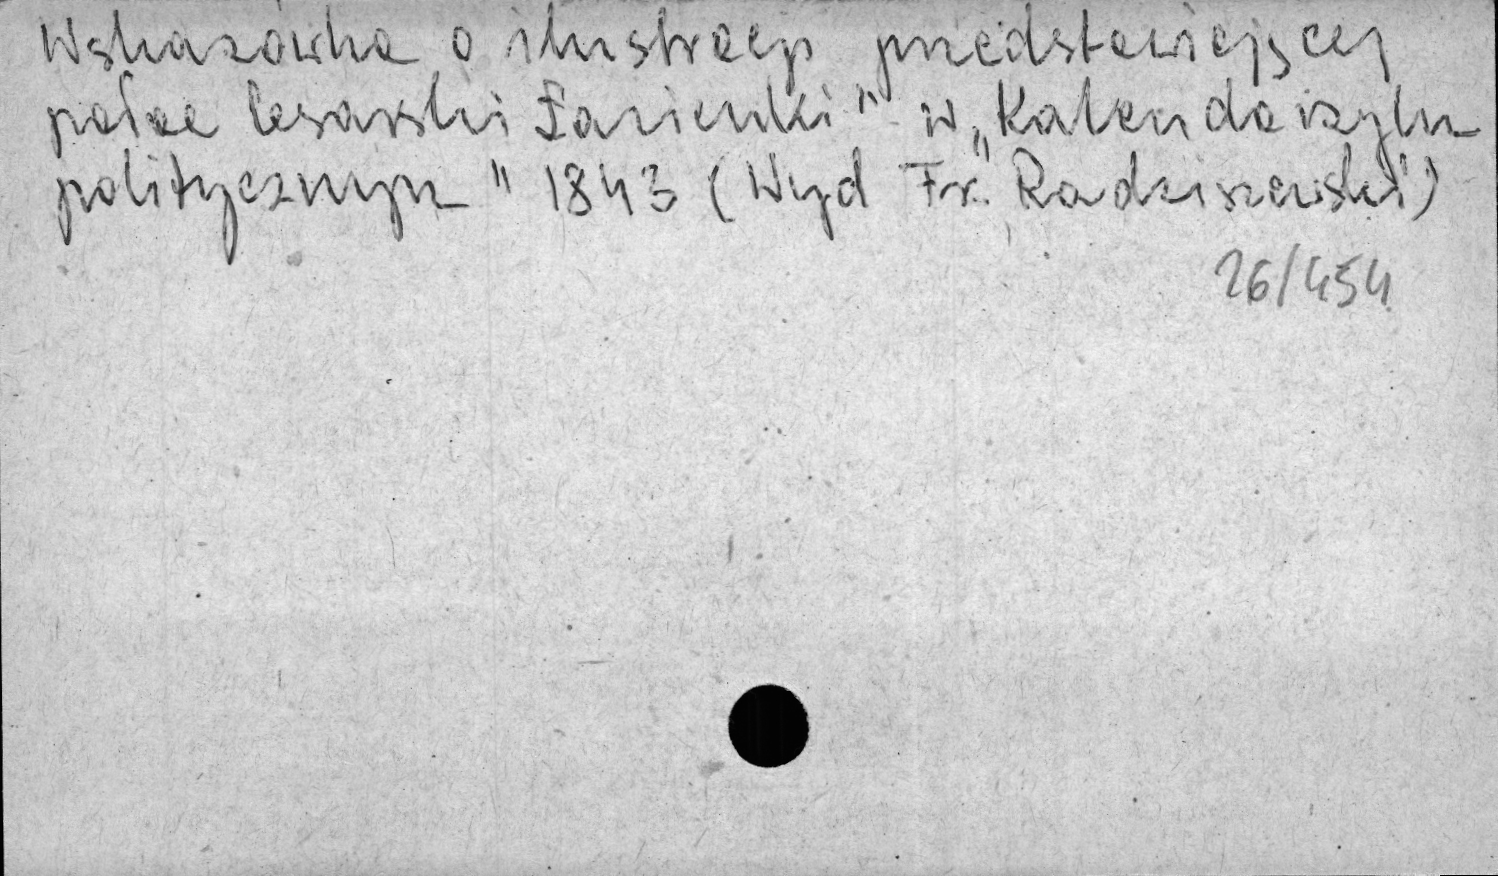 Wskazówka o ilustracji przedstawiającej
pałac cesarski Łazienki" w „Kalendarzyku
politycznym" 1843 (Wyd „Fr. Radziszewski)
26/454